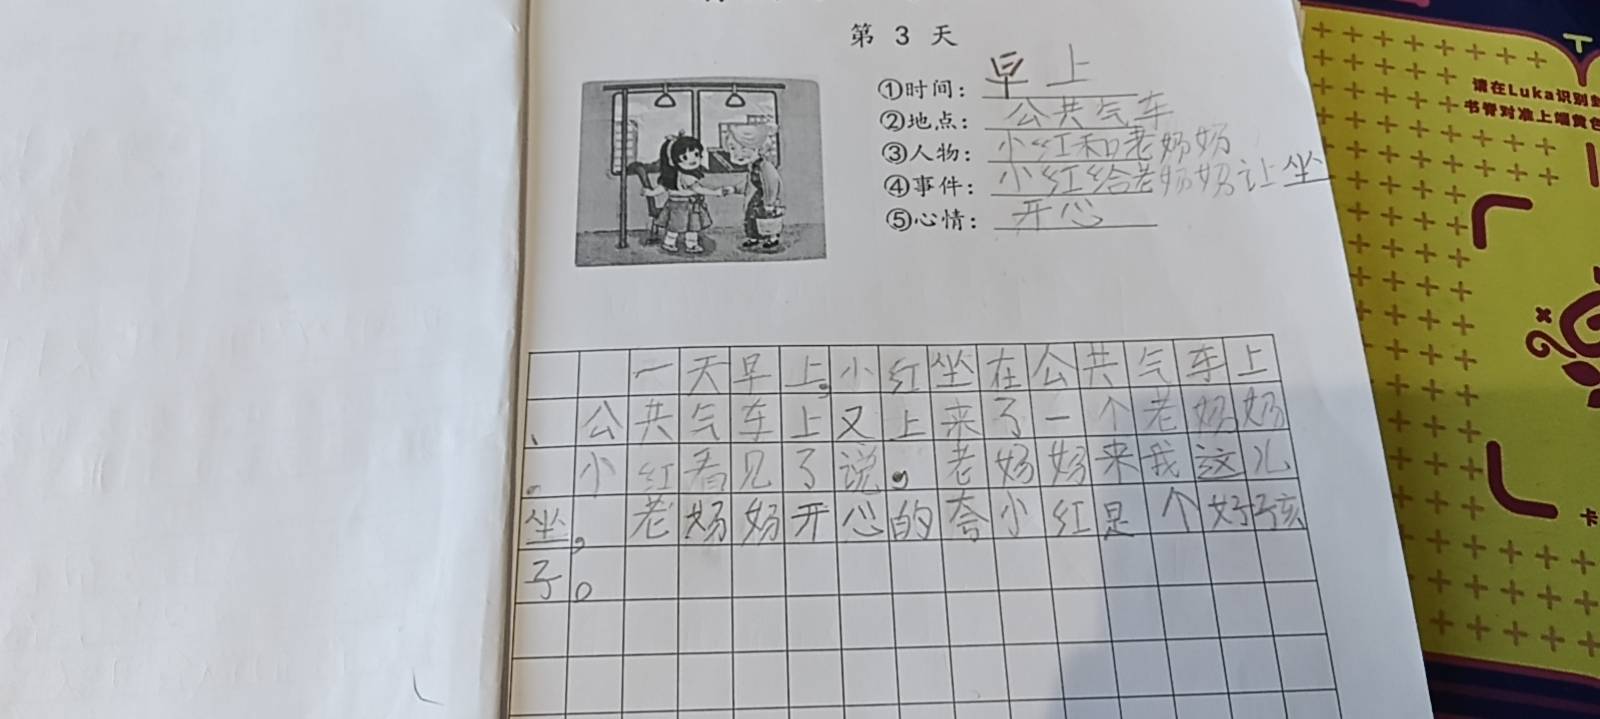 第 3 天
①时间：早上
②地点：公共气车
③人物：小红和老奶奶
④事件：小红给老奶奶让坐
⑤心情：开心
一天早上，小红坐在公共气车上
、公共气车上又上来了一个老奶奶
。小红看见了说，老奶奶来我这儿
坐，老奶奶开心的夸小红是个好孩
子。
请在Luka识别
书脊对准上端黄色
卡